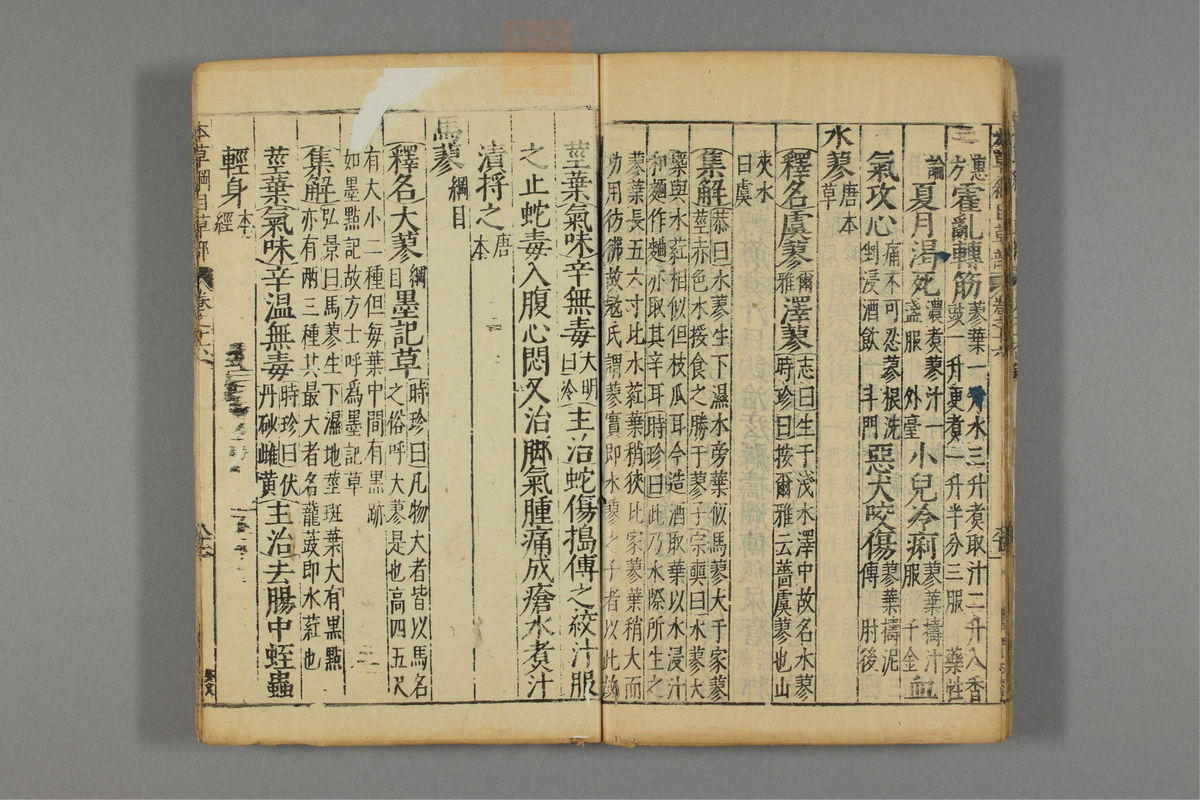 霍亂轉筋 蓼葉一升水三升煮取汁二升入香豉一升更煮一升半分三服 藥性論
夏月渴死 濃煮蓼汁一盞服 外臺 小兒冷痢 蓼葉擣汁服 千金 血
氣攻心 痛不可忍蓼根洗剉浸酒飲 斗門 惡犬咬傷 蓼葉擣泥傅 肘後
水蓼 唐本草
釋名 虞蓼 爾雅 澤蓼 志曰生于淺水澤中故名水蓼時珍曰按爾雅云薔虞蓼也山
夾水曰虞
集解 恭曰水蓼生下濕水旁葉似馬蓼大于家蓼莖赤色水挼食之勝于蓼子宗奭曰水蓼大
槩與水葒相似但枝瓜耳今造酒取葉以水浸汁和麵作麯亦取其辛耳時珍曰此乃水際所生之
蓼葉長五六寸比水葒葉稍狹比家蓼葉稍大而功用彷彿故寇氏謂蓼實即水蓼之子者以此故
莖葉氣味辛無毒 大明曰冷 主治蛇傷搗傅之絞汁服
之止蛇毒入腹心悶又治脚氣腫痛成瘡水煮汁
漬捋之 唐本
馬蓼 綱目
釋名 大蓼 綱目 墨記草 時珍曰凡物大者皆以馬名之俗呼大蓼是也高四五尺
有大小二種但每葉中間有黒跡如墨點記故方士呼爲墨記草
集解 弘景曰馬蓼生下濕地莖斑葉大有黒點亦有兩三種其最大者名蘢薣即水葒也
莖葉氣味辛溫無毒 時珍曰伏丹砂雌黄 主治去腸中蛭蟲
輕身 本經
本草綱目草部